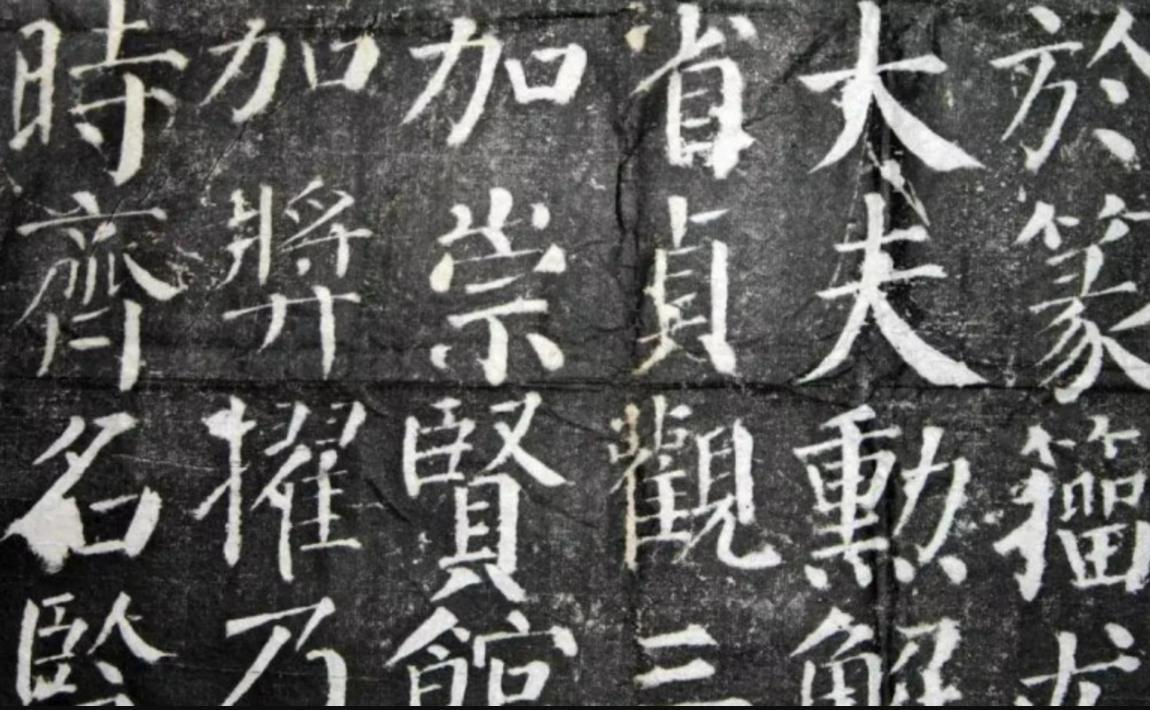 於篆籀尤
大夫勲解
省貞觀三
加崇賢館
加獎擢乃
時齊名監